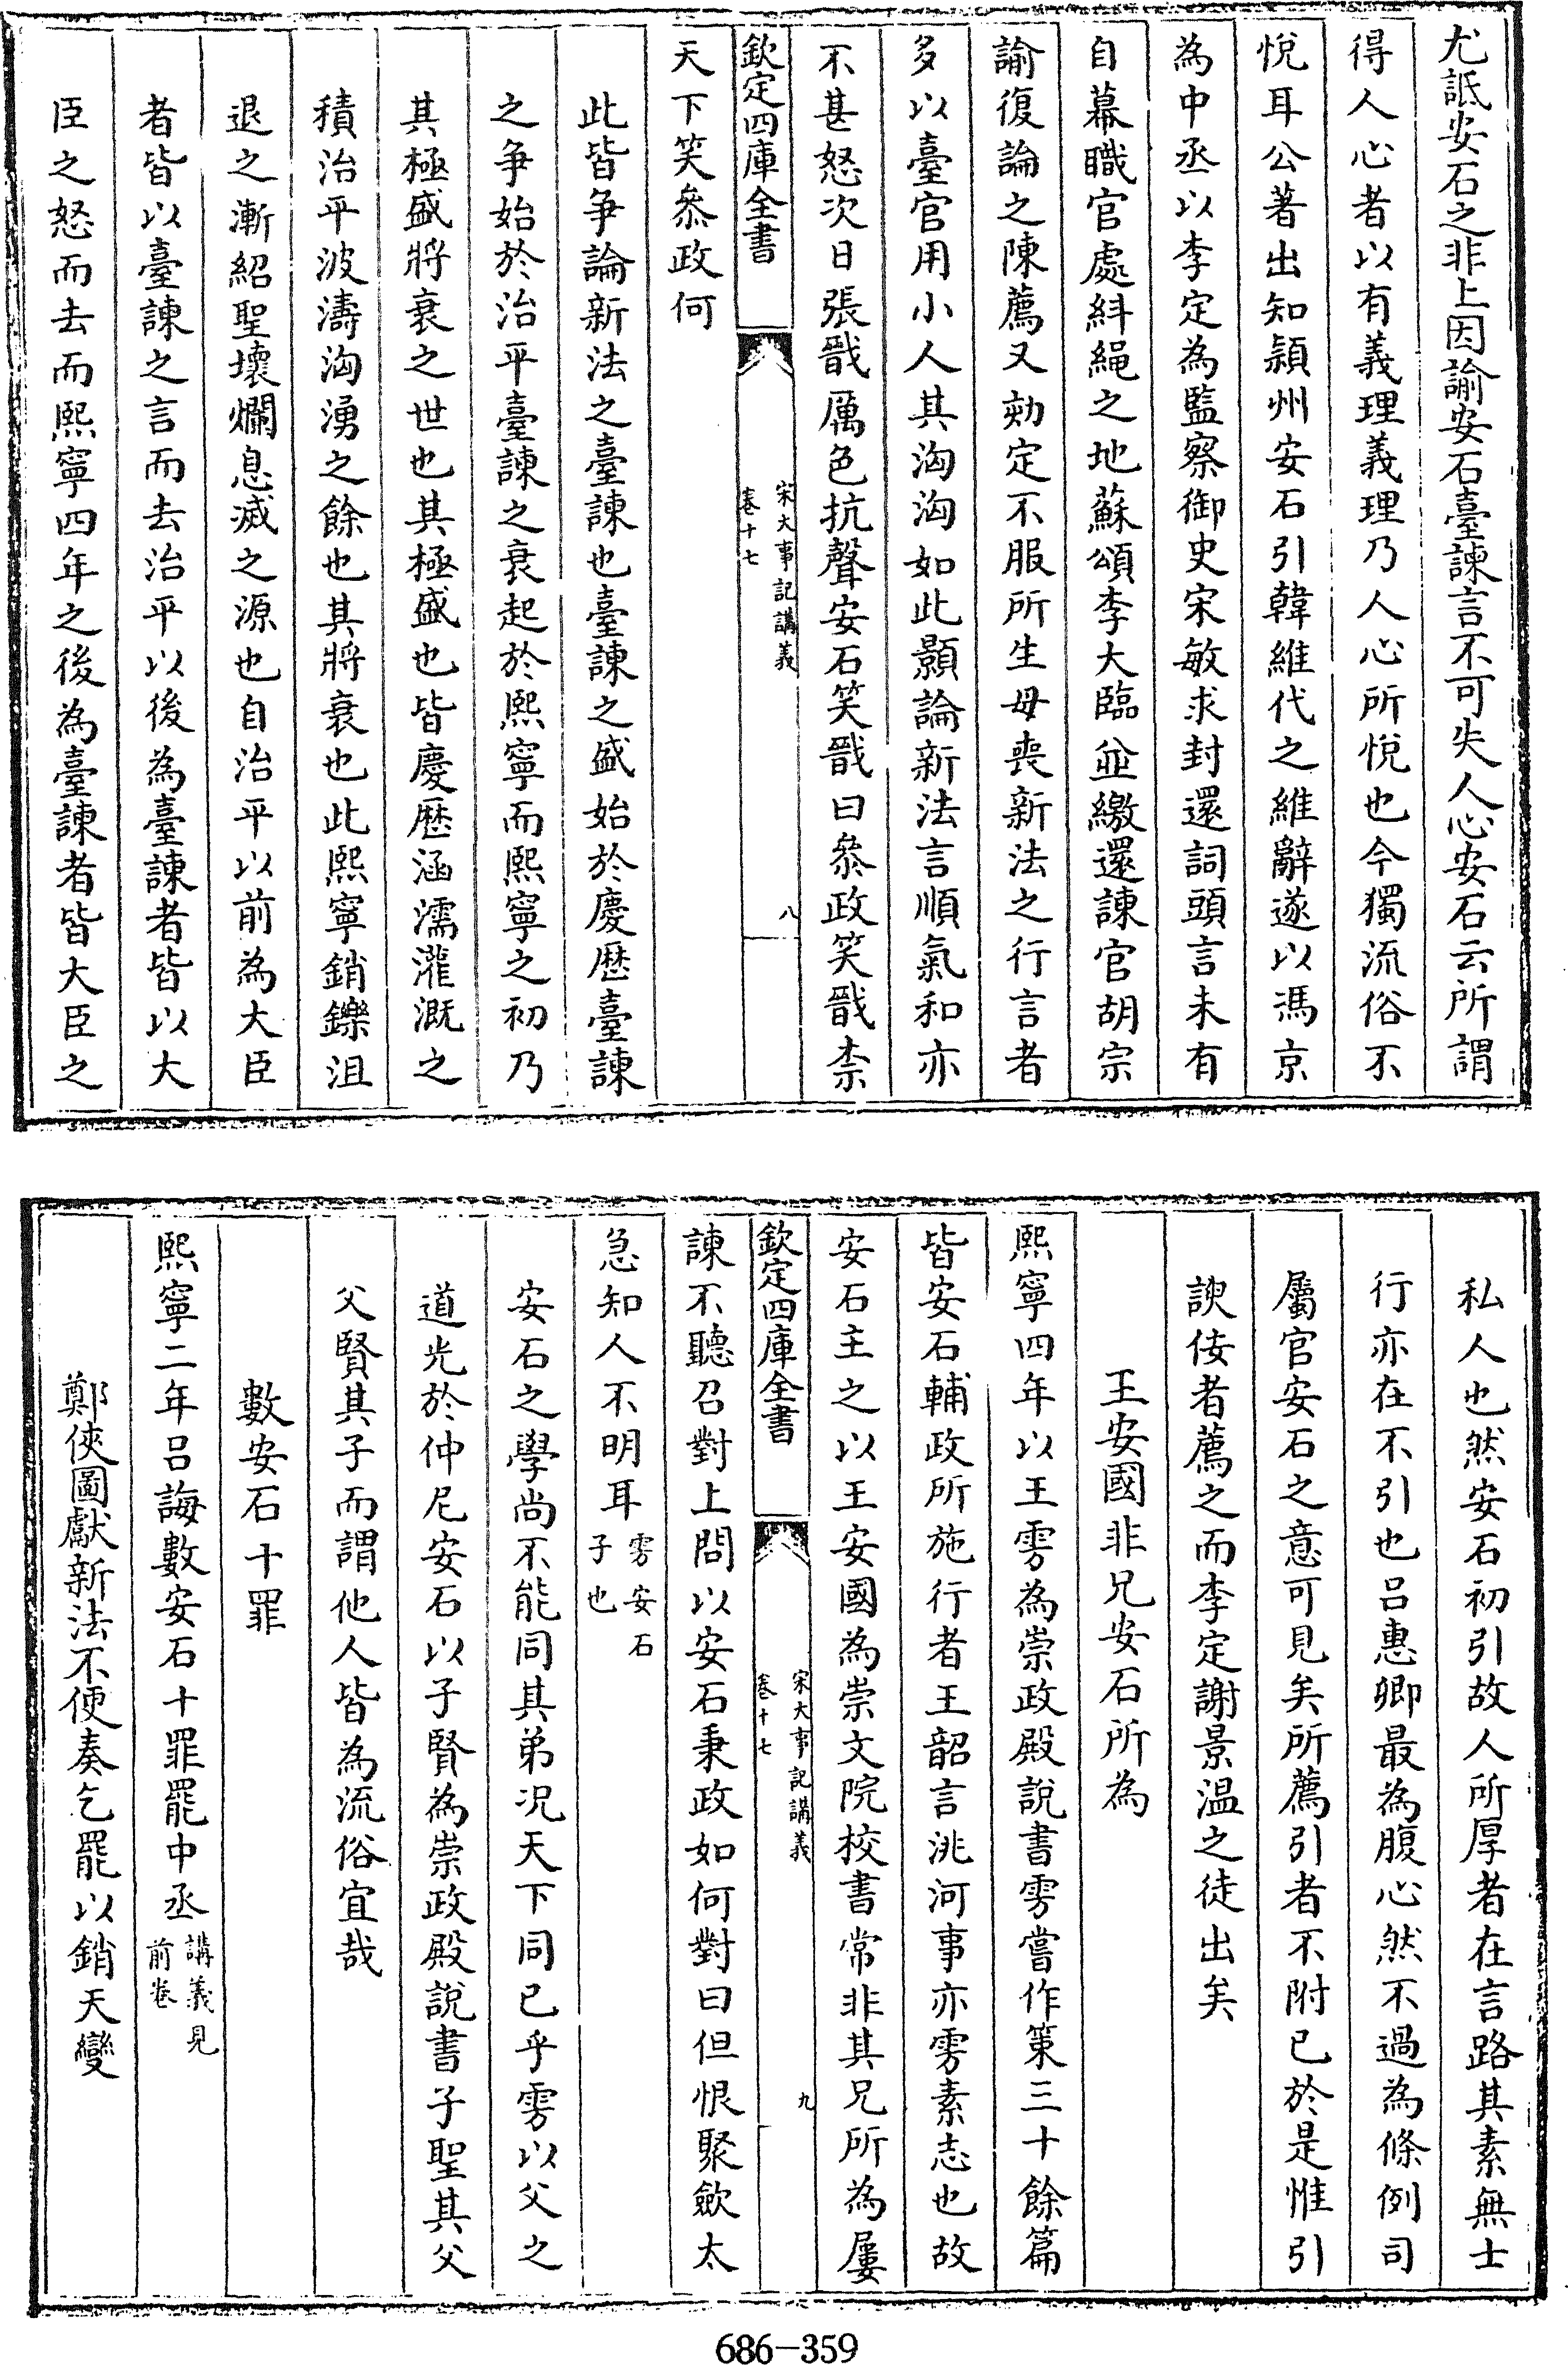 尤詆安石之非上因諭安石臺諫言不可失人心安石云所謂
得人心者以有義理義理乃人心所悅也今獨流俗不
悅耳公著出知潁州安石引韓維代之維辭遂以馮京
為中丞以李定為監察御史宋敏求封還詞頭言未有
自幕職官處糾繩之地蘇頌李大臨並繳還諫官胡宗
諭復論之陳薦又劾定不服所生母喪新法之行言者
多以臺官用小人其洶洶如此顥論新法言順氣和亦
不甚怒次日張戩厲色抗聲安石笑戩曰叅政笑戩柰
欽定四庫全書
宋大事記講義
卷十七
八
天下笑叅政何
此皆爭論新法之臺諫也臺諫之盛始於慶歴臺諫
之爭始於治平臺諫之衰起於熙寧而熙寧之初乃
其極盛將衰之世也其極盛也皆慶歴涵濡灌溉之
積治平波濤洶湧之餘也其將衰也此熙寧銷鑠沮
退之漸紹聖壞爛息滅之源也自治平以前為大臣
者皆以臺諫之言而去治平以後為臺諫者皆以大
臣之怒而去而熙寧四年之後為臺諫者皆大臣之
私人也然安石初引故人所厚者在言路其素無士
行亦在不引也呂惠卿最為腹心然不過為條例司
屬官安石之意可見矣所薦引者不附已於是惟引
諛佞者薦之而李定謝景温之徒出矣
王安國非兄安石所為
熙寧四年以王雱為崇政殿說書雱嘗作策三十餘篇
皆安石輔政所施行者王韶言洮河事亦雱素志也故
安石主之以王安國為崇文院校書常非其兄所為屢
欽定四庫全書
宋大事記講義
卷十七
九
諫不聽召對上問以安石秉政如何對曰但恨聚斂太
急知人不明耳雱安石子也
安石之學尚不能同其弟况天下同已乎雱以父之
道光於仲尼安石以子賢為崇政殿說書子聖其父
父賢其子而謂他人皆為流俗宜哉
數安石十罪
熙寧二年呂誨數安石十罪罷中丞講義見前卷
鄭俠圖獻新法不便奏乞罷以銷天變
686-359